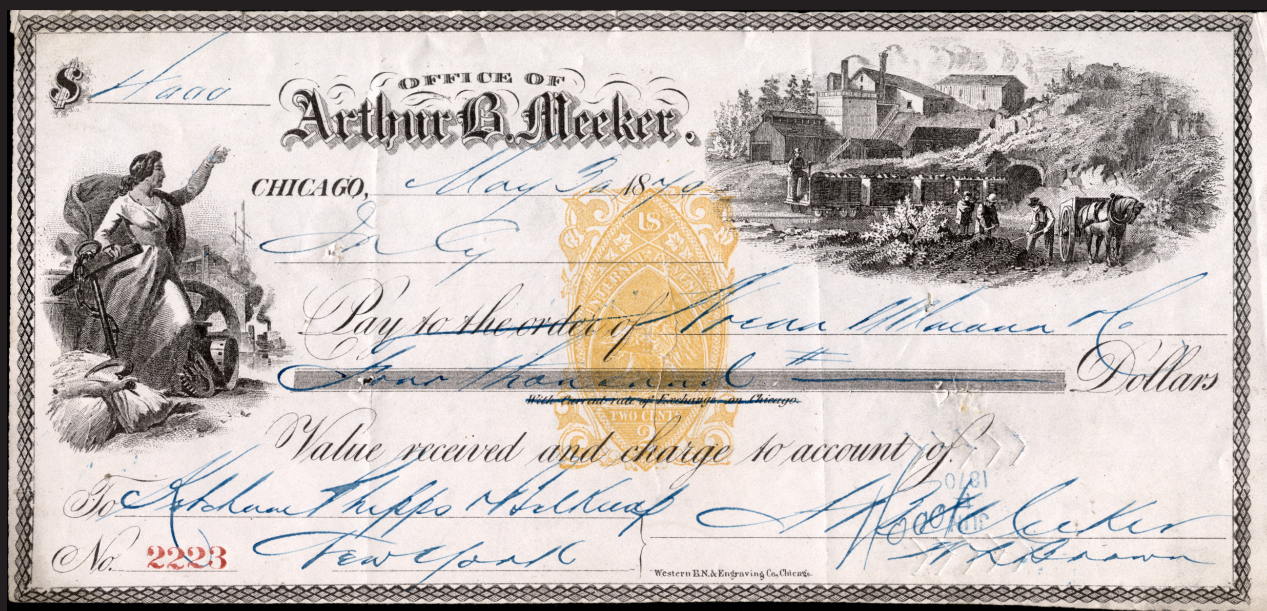 $ 4000
OFFICE OF
Arthur B. Meeker.
CHICAGO, May 30 1870
US
Pay to the order of
Four thousand Dollars
With Current rate of Exchange on Chicago.
TWO CENTS
2
Value received and charge to account of
To Ketchum Phipps & Belknap
A B Meeker
No. 2223 New York
W S Brown
1870
Western B.N. & Engraving Co., Chicago.